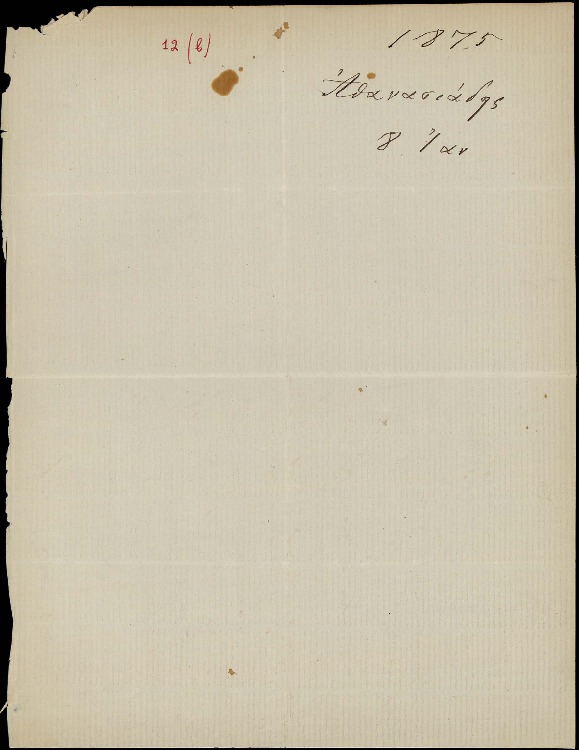 12 (b)
1875
Ἀθανασιάδης
8 Ἰαν